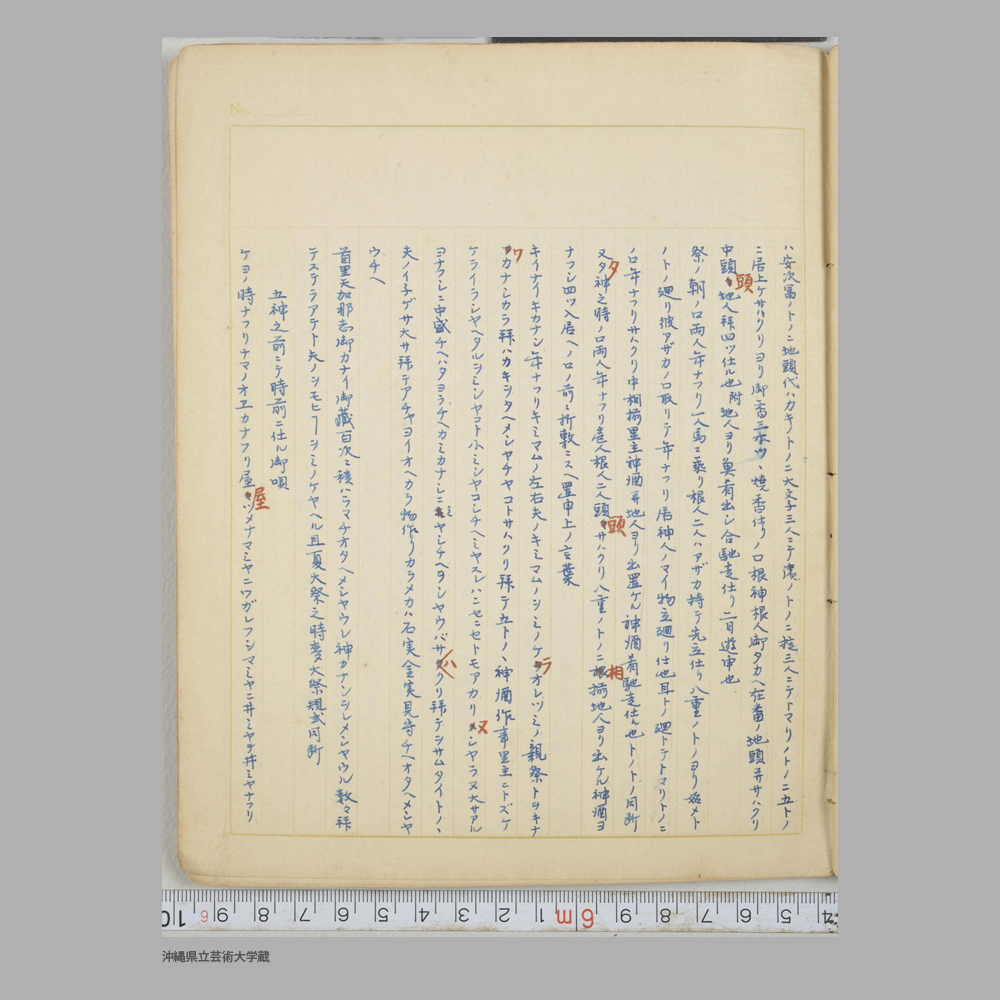 ハ安次冨ノトノニ地頭代ハカキノトノニ大文子三人ニテ濱ノトノニ掟三人ニテトマリノトノニ五トノ
ニ居上ケサハクリヨリ御香三本ツヽ焼香仕リノロ根神根人御タカヘ在番ノ地頭并サハクリ
中頭 地人拝四ツ仕ル也附地人ヨリ魚肴出シ合馳走仕リ二日遊申也
頭
祭ノ朝ノロ両人年ナフリ一人馬ニ乘り根人二人ハアザカ持テ先立仕リ八重ノトノヨリ始メト
ノトノ廻リ彼アザカノロ取リテ年ナフリ居神人ノマイ物立廻リ仕也耳トノ廻トテトマリトノニ
ノロ年ナフリサハクリ中相揃里主神酒并地人ヨリ出置ケル神酒肴馳走仕ル也トノトノ同断
又タ神之時ノロ両人年ナフリ居人根人二人頭 サハクリ八重ノトノニ 揃地人ヨリ出ケル神酒ヨ
タ
頭
相
ナフシ四ツ入居ヘノロノ前ニ折敷ニスヘ置申上ノ言葉
キイナイキカナシ年ナフリキミマムノ左右夫ノキミマムノシミノケ オレツミノ親祭トヲキナ
ラ
カナシカラ拝ハカキシタヘメシヤチヤコトサハクリ拝テ五トノヽ神酒作事里主ニトズケ
ワ
ケライラシヤヘタルシミシヤコト小ミシヤコシチヘミヤスレハニセニセトモアカリ メシヤラヌ大サアル
ヌ
ヨナフシニ中盛チヘハタヨラチヘカミカナシニ ヤシチヘヲシヤウバサ クリ拝テシサムタイトノヽ
ミ
ハ
夫ノイ子ゲサ大サ拝テアチヤヨイオヘカラ物作リカラメカハ石実金実見守チヘオタヘメシヤ
ウチヘ
首里天加那志御カナイ御藏百次ニ積ハラマチオタヘメシヤウレ神カナシシレメシヤウル数々拝
テステラアテト夫ノシモヒーシミノケヤヘル且夏大祭之時麦大祭規式同断
五神之前ニテ時前ニ仕ル御唄
ケヨノ時ナフリナマノオヱカナフリ屋 ツメナマミヤニワガレフシマミヤニ井ミヤ 井ミヤナフリ
屋
No.
10 6 9 8 7 6 5 4 3 2 1 6m 9 8 7 6 5 4
沖縄県立芸術大学蔵